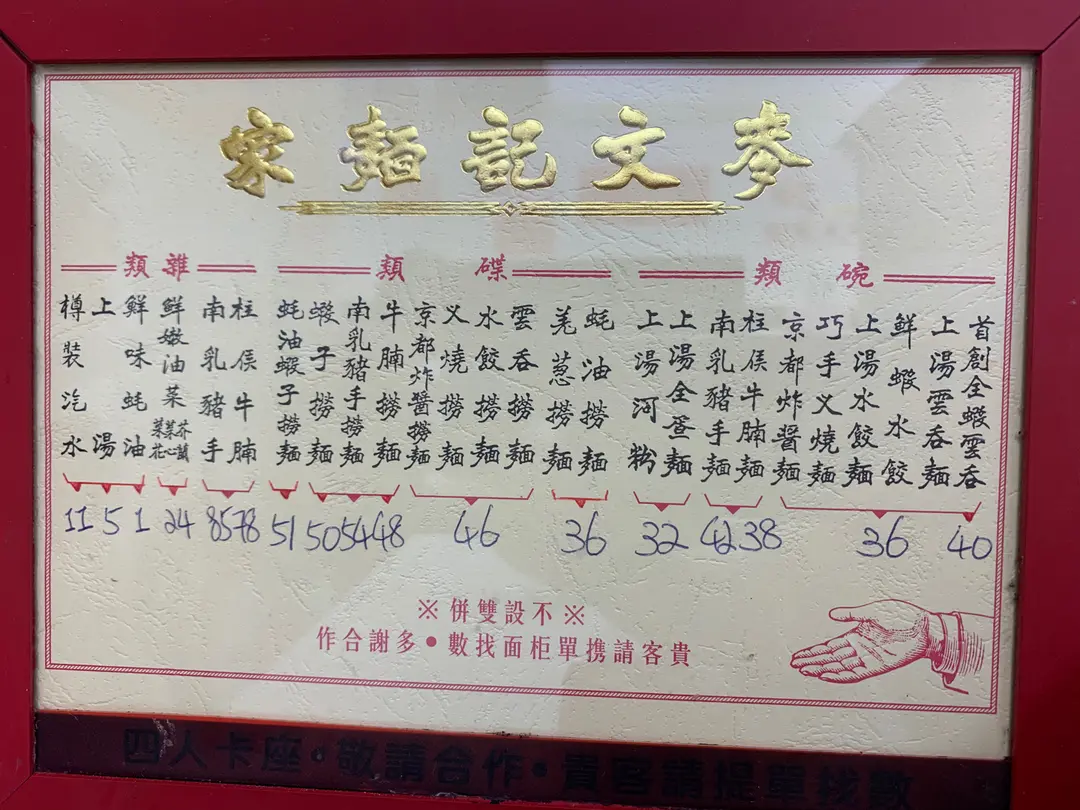 麥文記麵家
碗類
首創全蝦雲吞 40
上湯雲吞麵
鮮蝦水餃
上湯水餃麵
巧手义燒麵
京都炸醬麵
36
柱侯牛腩麵 38
南乳豬手麵 42
上湯全蛋麵
上湯河粉
32
碟類
蚝油撈麵
羗葱撈麵
36
雲吞撈麵
水餃撈麵
义燒撈麵
京都炸醬撈麵
46
牛腩撈麵 48
南乳豬手撈麵 54
蝦子撈麵 50
蚝油蝦子撈麵 51
雜類
柱侯牛腩 78
南乳豬手 85
鮮嫩油菜 芥蘭 菜心 菜花 24
鮮味蚝油 1
上湯 5
樽裝汽水 11
※不設雙併※
貴客請携單柜面找數•多謝合作
四人卡座•敬請合作•貴客請提單找數